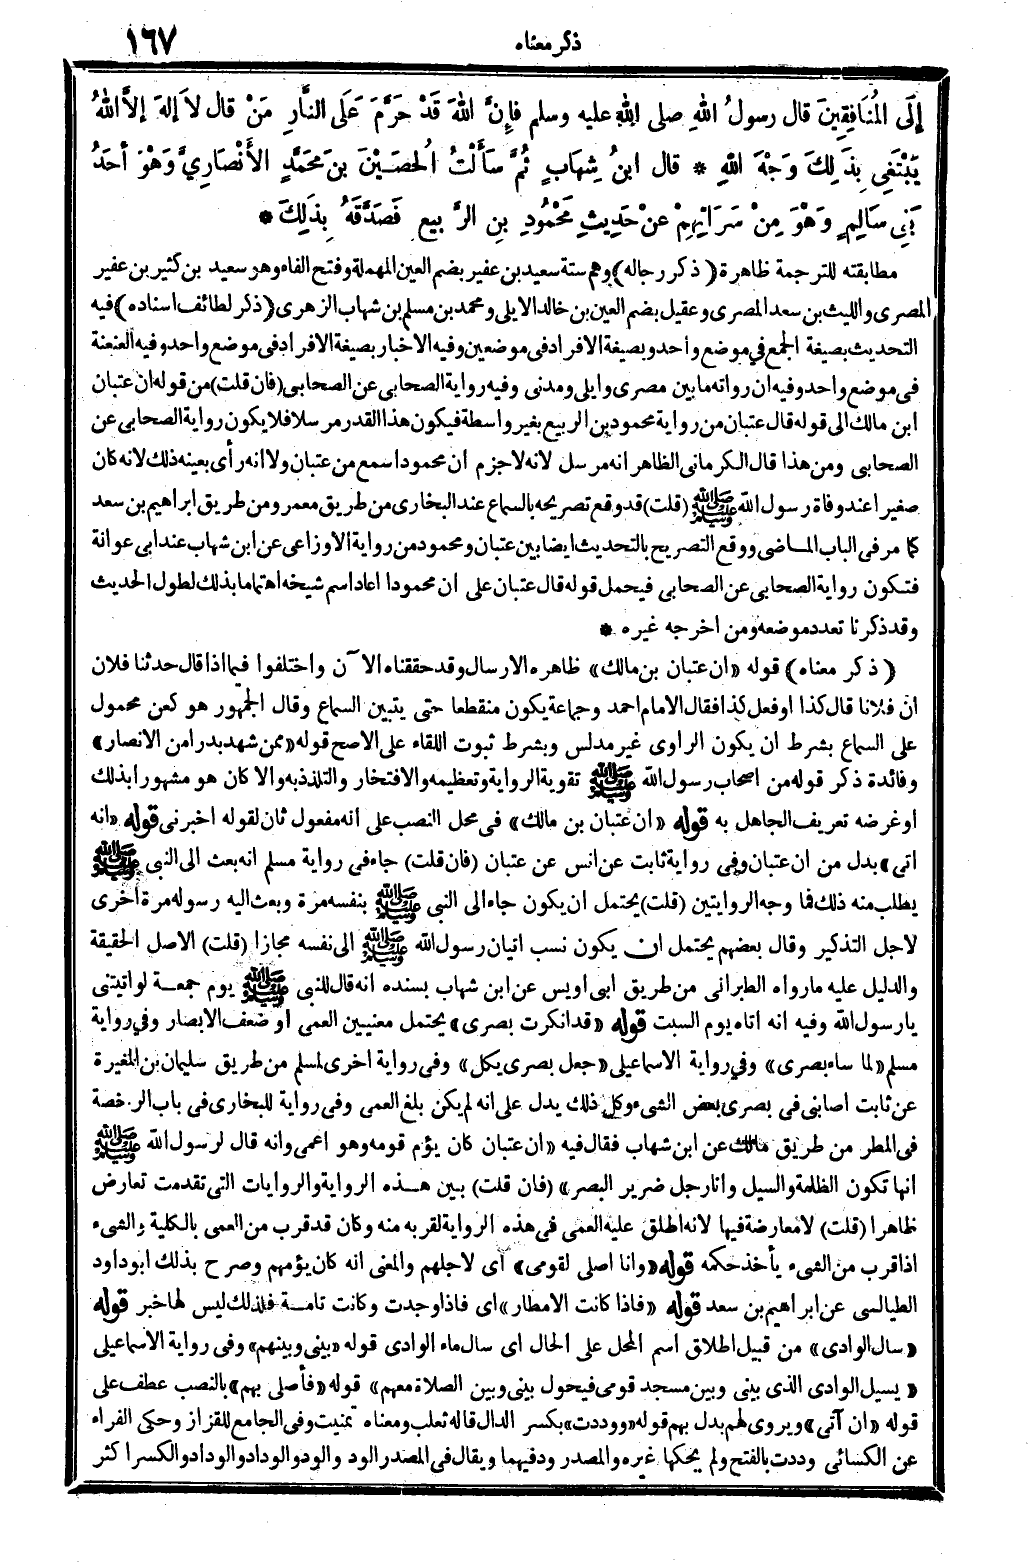 ذكر معناه
١٦٧
إِلَى الْمُنَافِقِينَ قال رسولُ اللهِ صلى الله عليه وسلم فإِنَّ اللهَ قَدْ حَرَّمَ عَلَى النَّارِ مَنْ قال لاَ إلهَ إلاَّ اللهُ
يَبْتَغِي بِذَلِكَ وَجْهَ اللهِ * قال ابنُ شِهَابٍ ثُمَّ سَأَلْتُ الحُصَيْنَ بنَ مَحمَّدٍ الأَنْصَارِيَّ وَهْوَ أحَدُ
بَنِي سَالِمٍ وَهْوَ مِنْ سَرَاتِهِمْ عنْ حَدِيثِ مَحْمُودِ بنِ الرَّبِيعِ فَصَدَّقَهُ بِذَلِكَ *
مطابقته للترجمة ظاهرة (ذكر رجاله) وهم ستة سعيد بن عفير بضم العين المهملة وفتح الفاء وهو سعيد بن كثير بن عفير
المصرى والليث بن سعد المصرى وعقيل بضم العين بن خالد الايلى ومحمد بن مسلم بن شهاب الزهرى (ذكر لطائف اسناده) فيه
التحديث بصيغة الجمع في موضع واحد وبصيغة الافراد فى موضعين وفيه الاخبار بصيغة الافراد فى موضع واحد وفيه العنعنة
فى موضع واحد وفيه ان رواته ما بين مصرى وايلى ومدنى وفيه رواية الصحابى عن الصحابى (فان قلت) من قوله ان عتبان
ابن مالك الى قوله قال عتبان من رواية محمود بن الربيع بغير واسطة فيكون هذا القدر مرسلا فلا يكون رواية الصحابى عن
الصحابى ومن هذا قال الكرمانى الظاهر انه مرسل لانه لا جزم ان محمودا سمع من عتبان ولا انه رأى بعينه ذلك لانه كان
صغيرا عند وفاة رسول الله ﷺ (قلت) قد وقع تصريحه بالسماع عند البخارى من طريق معمر ومن طريق ابراهيم بن سعد
كما مر فى الباب الماضى ووقع التصريح بالتحديث ايضا بين عتبان ومحمود من رواية الاوزاعى عن ابن شهاب عند ابى عوانة
فتكون رواية الصحابى عن الصحابى فيحمل قوله قال عتبان على ان محمودا اعاد اسم شيخه اهتماما بذلك لطول الحديث
وقد ذكرنا تعدد موضعه ومن اخرجه غيره *
(ذكر معناه) قوله «ان عتبان بن مالك» ظاهره الارسال وقد حققناه الآن واختلفوا فيما اذا قال حدثنا فلان
ان فلانا قال كذا او فعل كذا فقال الامام احمد وجماعة يكون منقطعا حتى يتبين السماع وقال الجمهور هو كعن محمول
على السماع بشرط ان يكون الراوى غير مدلس وبشرط ثبوت اللقاء على الاصح قوله «ممن شهد بدرا من الانصار»
وفائدة ذكر قوله من اصحاب رسول الله ﷺ تقوية الرواية وتعظيمه والافتخار والتلذذ به والا كان هو مشهورا بذلك
او غرضه تعريف الجاهل به قوله «ان عتبان بن مالك» فى محل النصب على انه مفعول ثان لقوله اخبرنى قوله «انه
اتى» بدل من ان عتبان وفى رواية ثابت عن انس عن عتبان (فان قلت) جاء فى رواية مسلم انه بعث الى النبى ﷺ
يطلب منه ذلك فما وجه الروايتين (قلت) يحتمل ان يكون جاء الى النبى ﷺ بنفسه مرة وبعث اليه رسوله مرة أخرى
لاجل التذكير وقال بعضهم يحتمل ان يكون نسب اتيان رسول الله ﷺ الى نفسه مجازا (قلت) الاصل الحقيقة
والدليل عليه ما رواه الطبرانى من طريق ابى اويس عن ابن شهاب بسنده انه قال للنبى ﷺ يوم جمعة لو اتيتنى
يا رسول الله وفيه انه اتاه يوم السبت قوله «قد انكرت بصرى» يحتمل معنيين العمى او ضعف الابصار وفى رواية
مسلم «لما ساء بصرى» وفى رواية الاسماعيلى «جعل بصرى يكل» وفى رواية اخرى لمسلم من طريق سليمان بن المغيرة
عن ثابت اصابنى فى بصرى بعض الشىء وكل ذلك يدل على انه لم يكن بلغ العمى وفى رواية للبخارى فى باب الرخصة
فى المطر من طريق مالك عن ابن شهاب فقال فيه «ان عتبان كان يؤم قومه وهو اعمى وانه قال لرسول الله ﷺ
انها تكون الظلمة والسيل وانا رجل ضرير البصر» (فان قلت) بين هذه الرواية والروايات التى تقدمت تعارض
ظاهرا (قلت) لا معارضة فيها لانه اطلق عليه العمى فى هذه الرواية لقربه منه وكان قد قرب من العمى بالكلية والشىء
اذا قرب من الشىء يأخذ حكمه قوله «وانا اصلى لقومى» أى لاجلهم والمعنى انه كان يؤمهم وصرح بذلك ابو داود
الطيالسى عن ابراهيم بن سعد قوله «فاذا كانت الامطار» اى فاذا وجدت وكانت تامة فلذلك ليس لها خبر قوله
«سال الوادى» من قبيل اطلاق اسم المحل على الحال اى سال ماء الوادى قوله «بينى وبينهم» وفى رواية الاسماعيلى
«يسيل الوادى الذى بينى وبين مسجد قومى فيحول بينى وبين الصلاة معهم» قوله «فأصلى بهم» بالنصب عطف على
قوله «ان آتى» ويروى لهم بدل بهم قوله «ووددت» بكسر الدال قاله ثعلب ومعناه تمنيت وفى الجامع للقزاز وحكى الفراء
عن الكسائى وددت بالفتح ولم يحكها غيره والمصدر ود فيهما ويقال فى المصدر الود والود والوداد والوداد والكسر اكثر